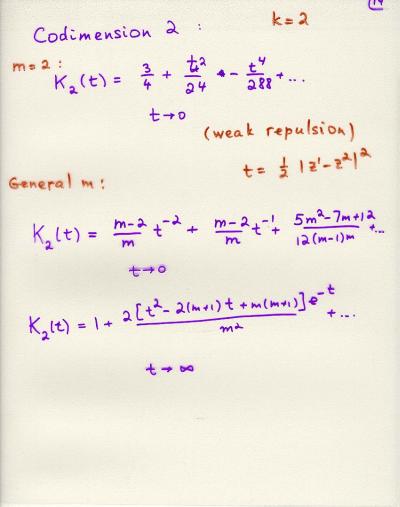 14
Codimension 2 : k = 2
m = 2 :
K₂(t) = 3/4 + t²/24 - t⁴/288 + ...
t → 0
(weak repulsion)
t = 1/2 |z¹ - z²|²
General m :
K₂(t) = (m-2)/m t⁻² + (m-2)/m t⁻¹ + (5m²-7m+12)/(12(m-1)m) + ...
t → 0
K₂(t) = 1 + 2[t² - 2(m+1)t + m(m+1)]e⁻ᵗ/m² + ...
t → ∞